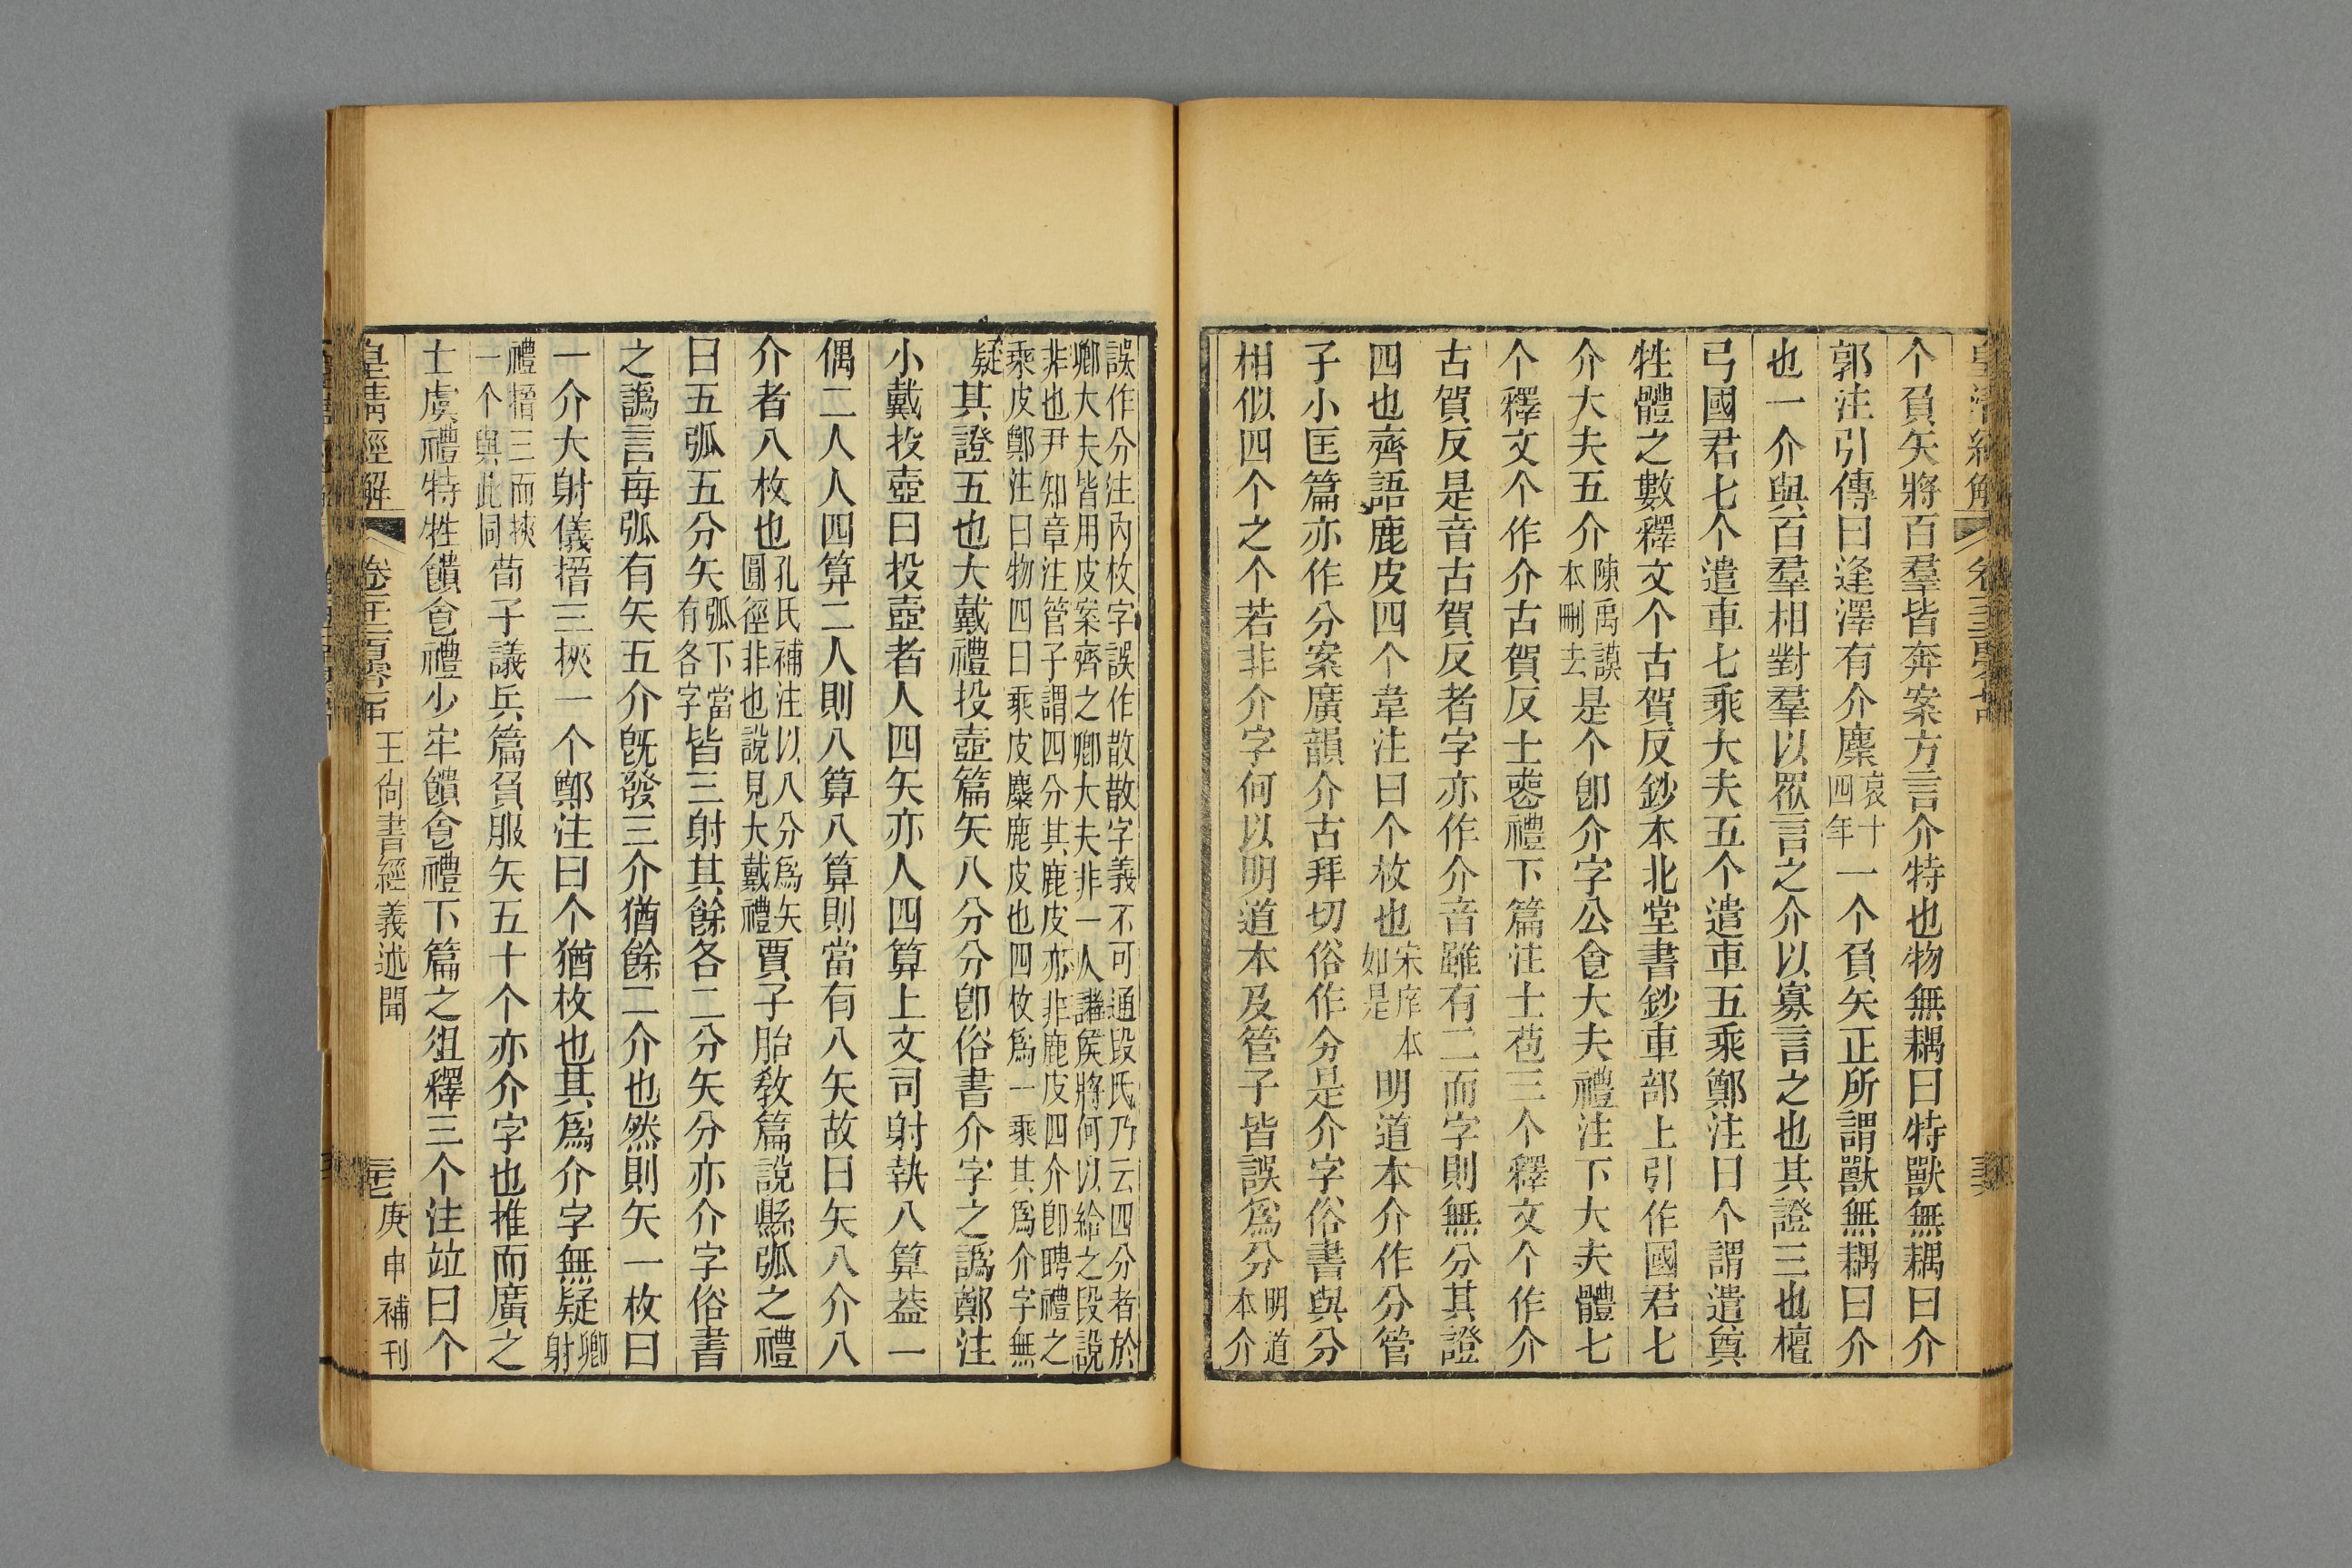 个負矢將百羣皆奔案方言介特也物無耦曰特獸無耦曰介
郭注引傳曰逢澤有介麋哀十四年一个負矢正所謂獸無耦曰介
也一介與百羣相對羣以眾言之介以寡言之也其證三也檀
弓國君七个遣車七乘大夫五个遣車五乘鄭注曰个謂遣奠
牲體之數釋文个古賀反鈔本北堂書鈔車部上引作國君七
介大夫五介陳禹謨本刪去是个卽介字公食大夫禮注下大夫體七
个釋文个作介古賀反士喪禮下篇注士苞三个釋文个作介
古賀反是音古賀反者字亦作介音雖有二而字則無分其證
四也齊語鹿皮四个韋注曰个枚也宋庠本如是明道本介作分管
子小匡篇亦作分案廣韻介古拜切俗作分是介字俗書與分
相似四个之个若非介字何以明道本及管子皆誤爲分明道本介
誤作分注內枚字誤作散散字義不可通段氏乃云四分者於
卿大夫皆用皮案齊之卿大夫非一人諸侯將何以給之段說
非也尹知章注管子謂四分其鹿皮亦非鹿皮四介卽聘禮之
乘皮鄭注曰物四曰乘皮麋鹿皮也四枚爲一乘其爲介字無
疑其證五也大戴禮投壺篇矢八分分卽俗書介字之譌鄭注
小戴投壺曰投壺者人四矢亦人四算上文司射執八算葢一
偶二人人四算二人則八算八算則當有八矢故曰矢八介八
介者八枚也孔氏補注以八分爲矢圓徑非也說見大戴禮賈子胎敎篇說縣弧之禮
曰五弧五分矢弧下當有各字皆三射其餘各二分矢分亦介字俗書
之譌言每弧有矢五介旣發三介猶餘二介也然則矢一枚曰
一介大射儀搢三挾一个鄭注曰个猶枚也其爲介字無疑鄉射
禮搢三而挾一个與此同荀子議兵篇負服矢五十个亦介字也推而廣之
士虞禮特牲饋食禮少牢饋食禮下篇之俎釋三个注竝曰个
皇淸經解
王尙書經義述聞
庚申補刊